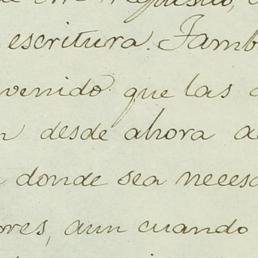 escritura. Tamb
venido que las
desde ahora a
donde sea neces
res, aun cuando